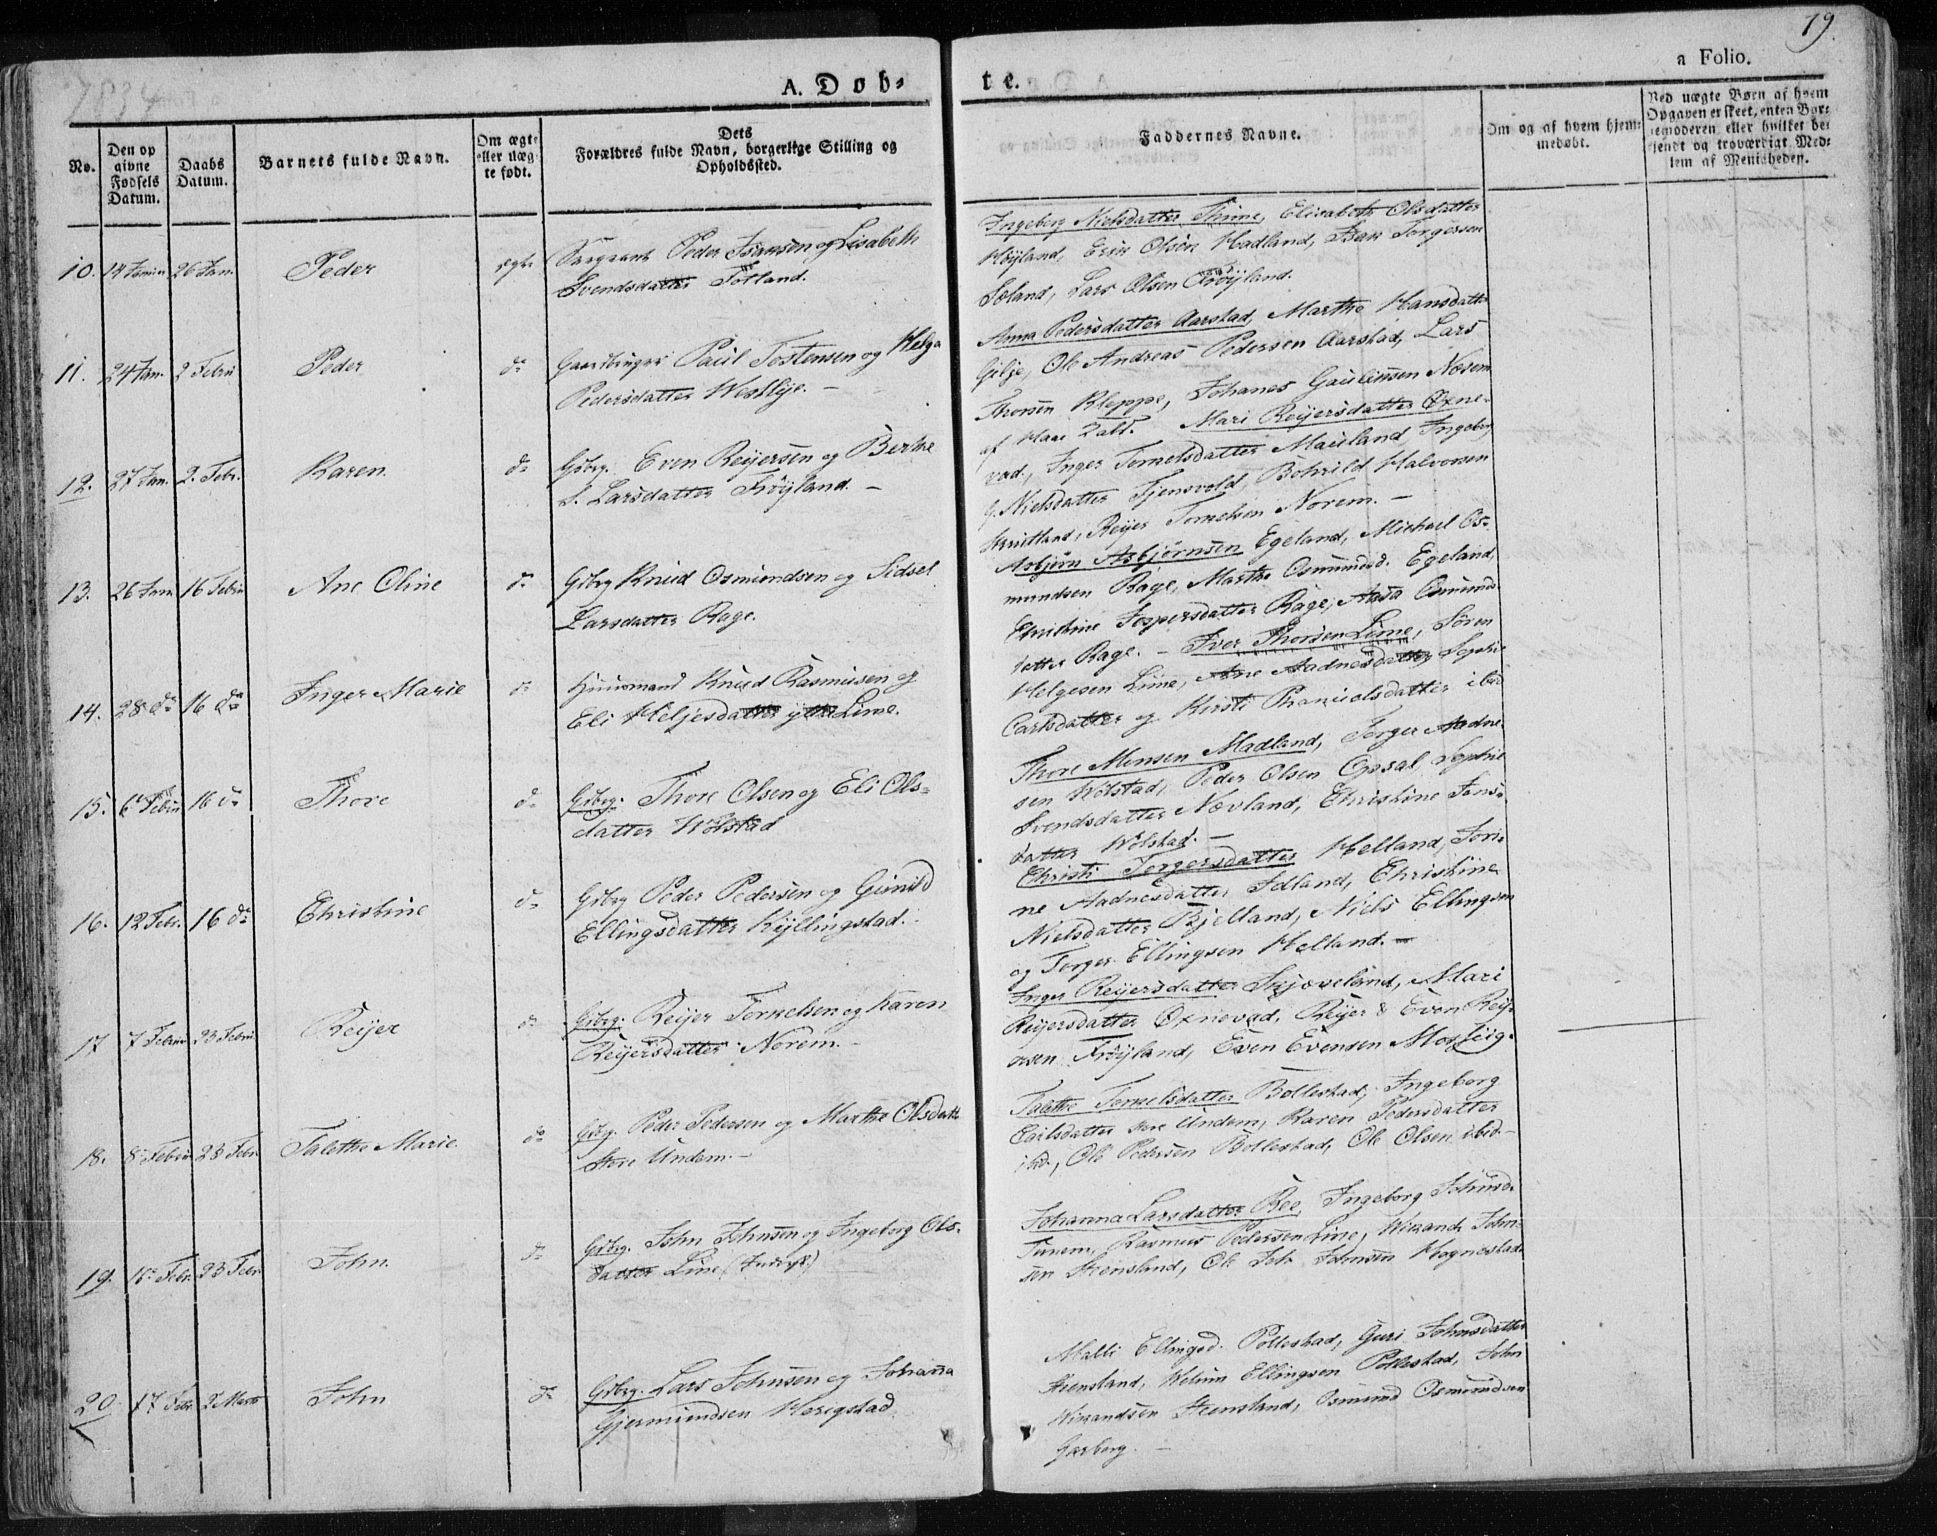 1834
A. Døb-
te.
19.
a Folio.
No.
Den op
givne
Fødsels
Datum.
Daabs
Datum.
Barnets fulde Navn.
Om ægte
eller uæg
te født.
Dets
Forældres fulde Navn, borgerlige Stilling og
Opholdsted.
Faddernes Navne.
Om og af hvem hjem-
medøbt.
Ved uægte Børn af hvem
Opgaven er skeet, enten Bar-
nemoderen eller hvilket be-
kjendt og troværdigt Med-
lem af Menigheden.
10. 14 Janu 26 Jan. Peder ægte Sargeant Peder Isaksen og Lisabeth
Svendsdatter Totland.
Ingeborg Nielsdatter Thime, Elisabeth Olsdatter
Høyland, Erik Olsen Hadland, Isak Torgersen
Soland, Lars Olsen Frøyland.
11. 24 Jan. 2 Febru Peder do Gaardbruger Paul Tostensen og Helga
Pedersdatter Westlye. –
Anna Pedersdatter Aarstad, Marthe Hansdatter
Gilje, Ole Andreas Pedersen Aarstad, Lars
Thorsen Kleppe, Johanes Gaulinsen Næsem
af Haae
12. 27 Jan. 2. Febr. Karen do Gbrg. Even Reijersen og Berthe
S. Larsdatter Frøyland. –
Mari Reijersdatter Oxne-
vad, Inger Tornelsdatter Maudland, Ingeborg
G. Nielsdatter Tjensvold, Bohild Halvorsen
Reijer Tornelsen Norem. –
13. 26 Jan 16 Febru Ane Oline do Gbrg Knud Osmundsen og Sidsel
Larsdatter Rage.
Asbjørn Asbjørnsen Egeland, Michael Os-
mundsen Rage, Marthe Osmundsd. Egeland,
Christine Jespersdatter Rage, Aasa Osmunds-
datter Rage. –
14. 28 do 16 do Inger Marie do Huusmand Knud Rasmusen og
Eli Heljesdatter Lime.
Iver Thorsen Lime, Søren
Helgesen Lime, Ane Aadnesdatter, Sophie
Carlsdatter og Kirsti ibid
15. 6 Febru 16 do Thore do Gbrg. Thore Olsen og Eli Ols-
datter Wølstad
Thore Monsen Madland, Torger Aadne-
sen Wølstad, Peder Olsen Opsal, Sophie
Svendsdatter Nævland, Christine Jens-
datter Wølstad. –
16. 12 Febr. 16 do Christine do Gbrg Peder Pedersen og Gunild
Ellingsdatter Kyllingstad.
Christi Torgersdatter Helland, Jori-
ne Aadnesdatter Idland, Christine
Nielsdatter Bjelland, Niels Ellingsen
og Torger Ellingsen Helland. –
17 7 Febru 23 Febru Reijer do Gbrg. Reijer Tornelsen og Karen
Reijersdatter Norem. –
Inger Reijersdatter Skjæveland, Mari
Reijersdatter Oxnevad, Reijer & Even Reij-
ersen Frøyland, Even Evensen Mosseig.
18. 8 Febru 23 Febr. Talethe Marie do Gbrg. Peder Pedersen og Marthe Olsdatte
Store Undem. –
Talethe Tornelsdatter Bollestad, Ingeborg
Carlsdatter store Undem, Karen Pedersdatter
ibd., Ole Pedersen Bollestad, Ole Olsen ibid. –
19. Febr. 23 Febr. John do Gbrg. John Johnsen og Ingeborg Ols-
datter Line
Johanna Larsdatter Ree, Ingeborg Johnsd.
Tunem, Rasmus Pedersen Line, Wiland John-
sen Steensland, Ole Johnsen Hognestad
20 17 Febr 2 Marts John do Gbrg. Lars Johnsen og Johanna
Gjermundsen Herigstad.
Malli Ellingsd. Pollestad, Guri Johnsdatter
Steensland, Ellingsen Pollestad, John
Steensland, Osmund Osmundsen
Garborg. –